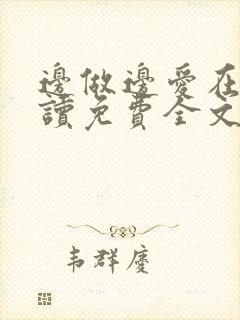 邊做邊愛在
讀免費全文
韦群慶